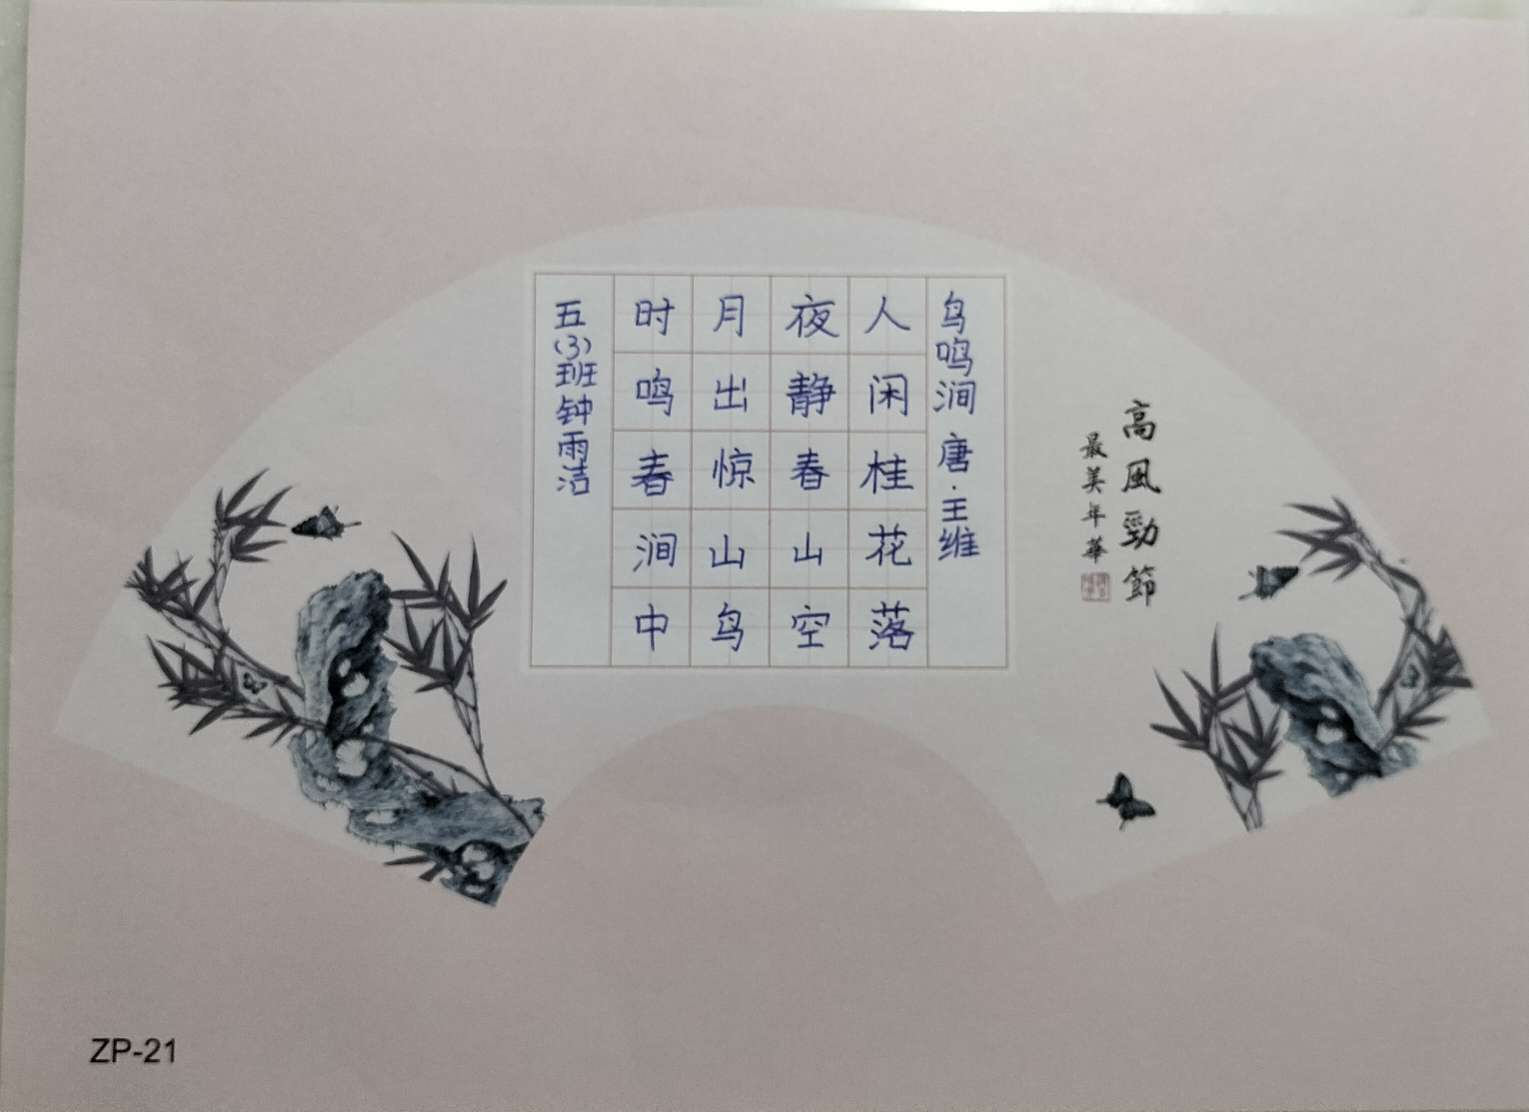 高風勁節
最美年華
鸟鸣涧 唐·王维
人闲桂花落
夜静春山空
月出惊山鸟
时鸣春涧中
五(3)班钟雨洁
ZP-21